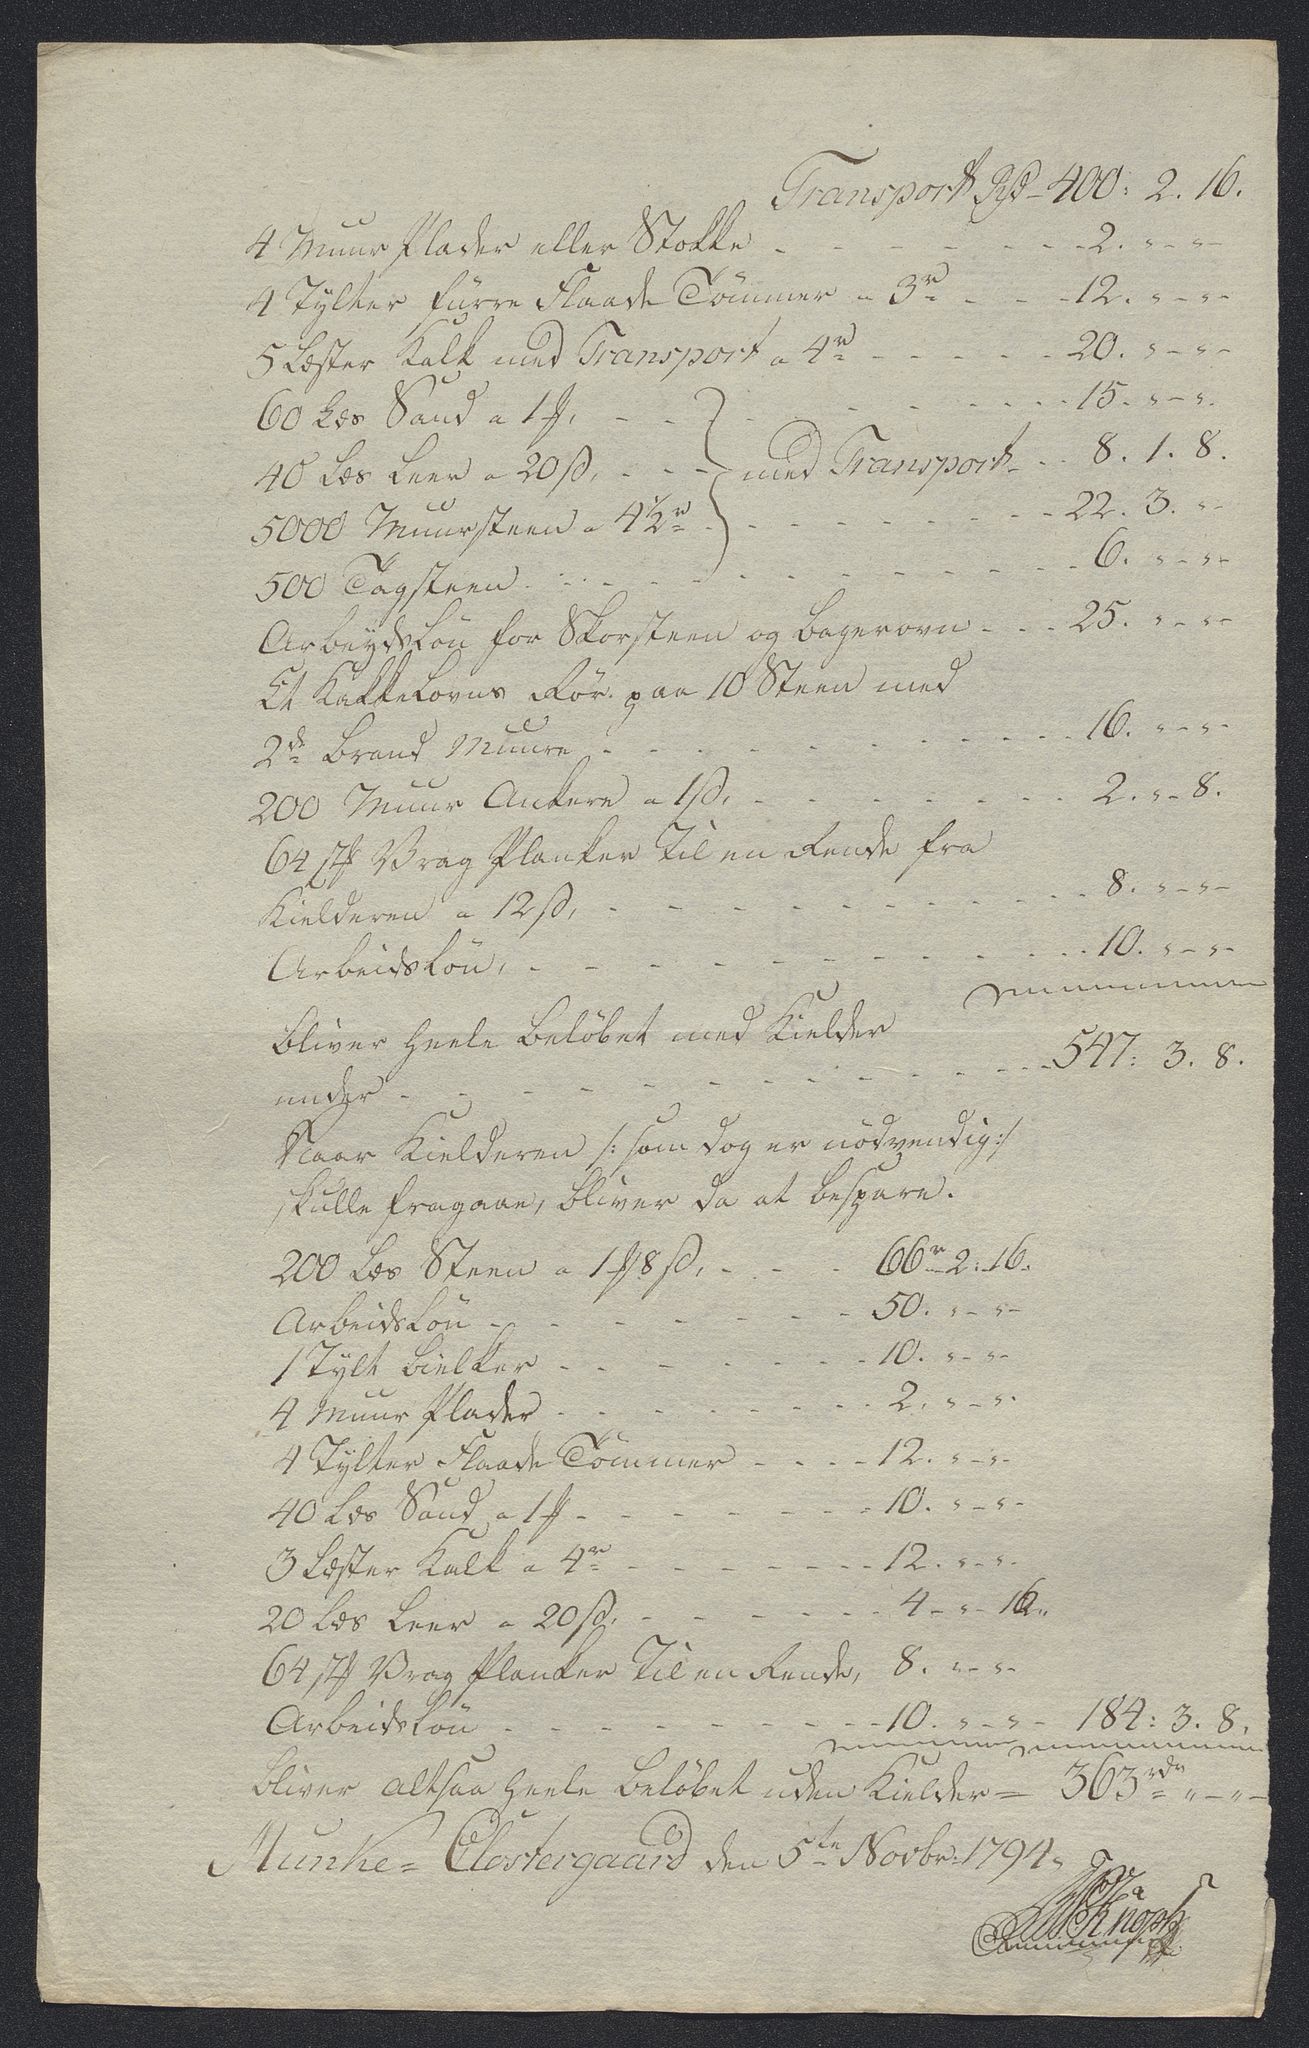 Transport Rd 400: 2. 16.
4 Muur Plader eller Stokke - - - 2. " - " -
4 Tylter furre Flaade Tömmer a 3r - - - 12. " - " -
5 Læster Kalk med Transport a 4r - - - 20. " - " -
60 Læs Sand a 1 ₰. - - - 15. " - ".
40 Læs Leer a 20 ß. - - - med Transport - - 8. 1. 8.
5000 Muursteen a 4½r - - - 22. 3. " -
500 Tagsteen - - - 6. " - " -
Arbeydslön for Skorsteen og Bagerovn - - - 25. " - " -
Et Kakkelovns Rör paa 10 Steen med
2de Brand Muure - - - 16. " - " -
200 Muur Ankere a 1 ß. - - - 2. " - 8.
64 st Vrag Planker til en Rende fra
Kielderen a 12 ß. - - - 8. " - " -
Arbeidslön, - - - 10. " - " -
bliver heele Belöbet med Kielder
under - - - 547: 3. 8.
Naar Kielderen /: som dog er nödvendig :/
skulle fragaae, bliver da at bespare.
200 Læs Steen a 1 ₰ 8 ß. - - - 66r 2: 16.
Arbeidslön - - - 50. " - " -
1 Tylt Bielker - - - 10. " - " -
4 Muur Plader - - - 2. " - ".
4 Tylter Flaade Tömmer - - - 12. " - " -
40 Læs Sand a 1 ₰ - - - 10. " - " -
3 Læster Kalk a 4r - - - 12. " - ".
20 Læs Leer a 20 ß. - - - 4 - " - 16.
64 st Vrag Planker til en Rende, 8. " - " -
Arbeidslön - - - 10. " - " - 184: 3. 8.
bliver altsaa heele Belöbet uden Kielder = 363 rdr " - " -
Munke= Clostergaard den 5te Novbr. 1794.
Knoph